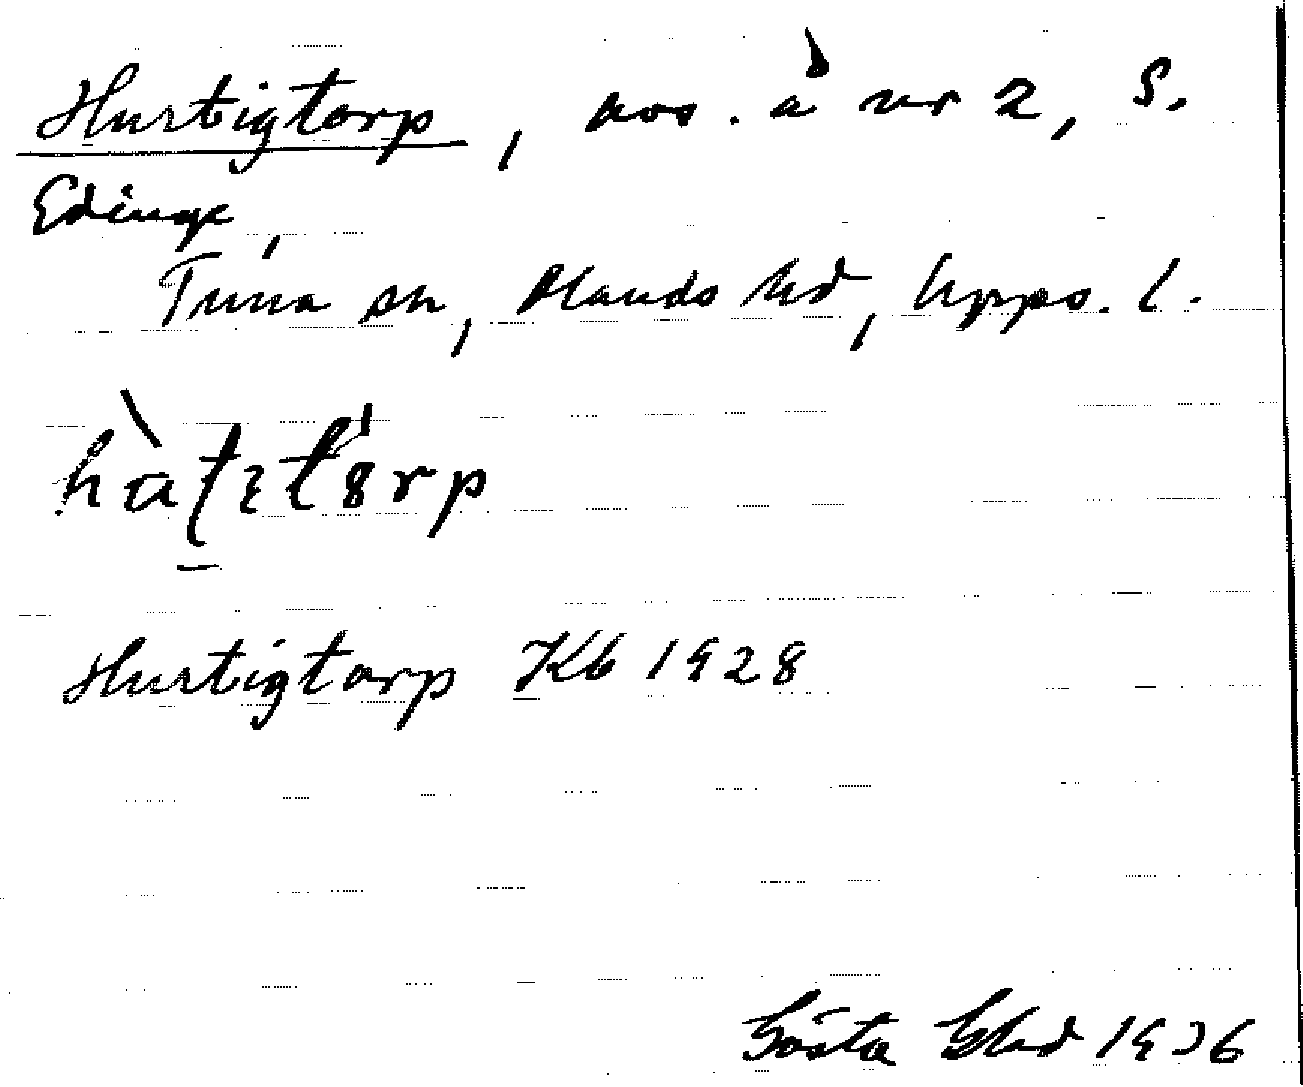 Hurtigtorp, avs. å nr 2, S.
Edinge,
Tuna sn, Olands hd, Upps. l.
Hurtigtorp Kb 1928
Gösta Blad 1936